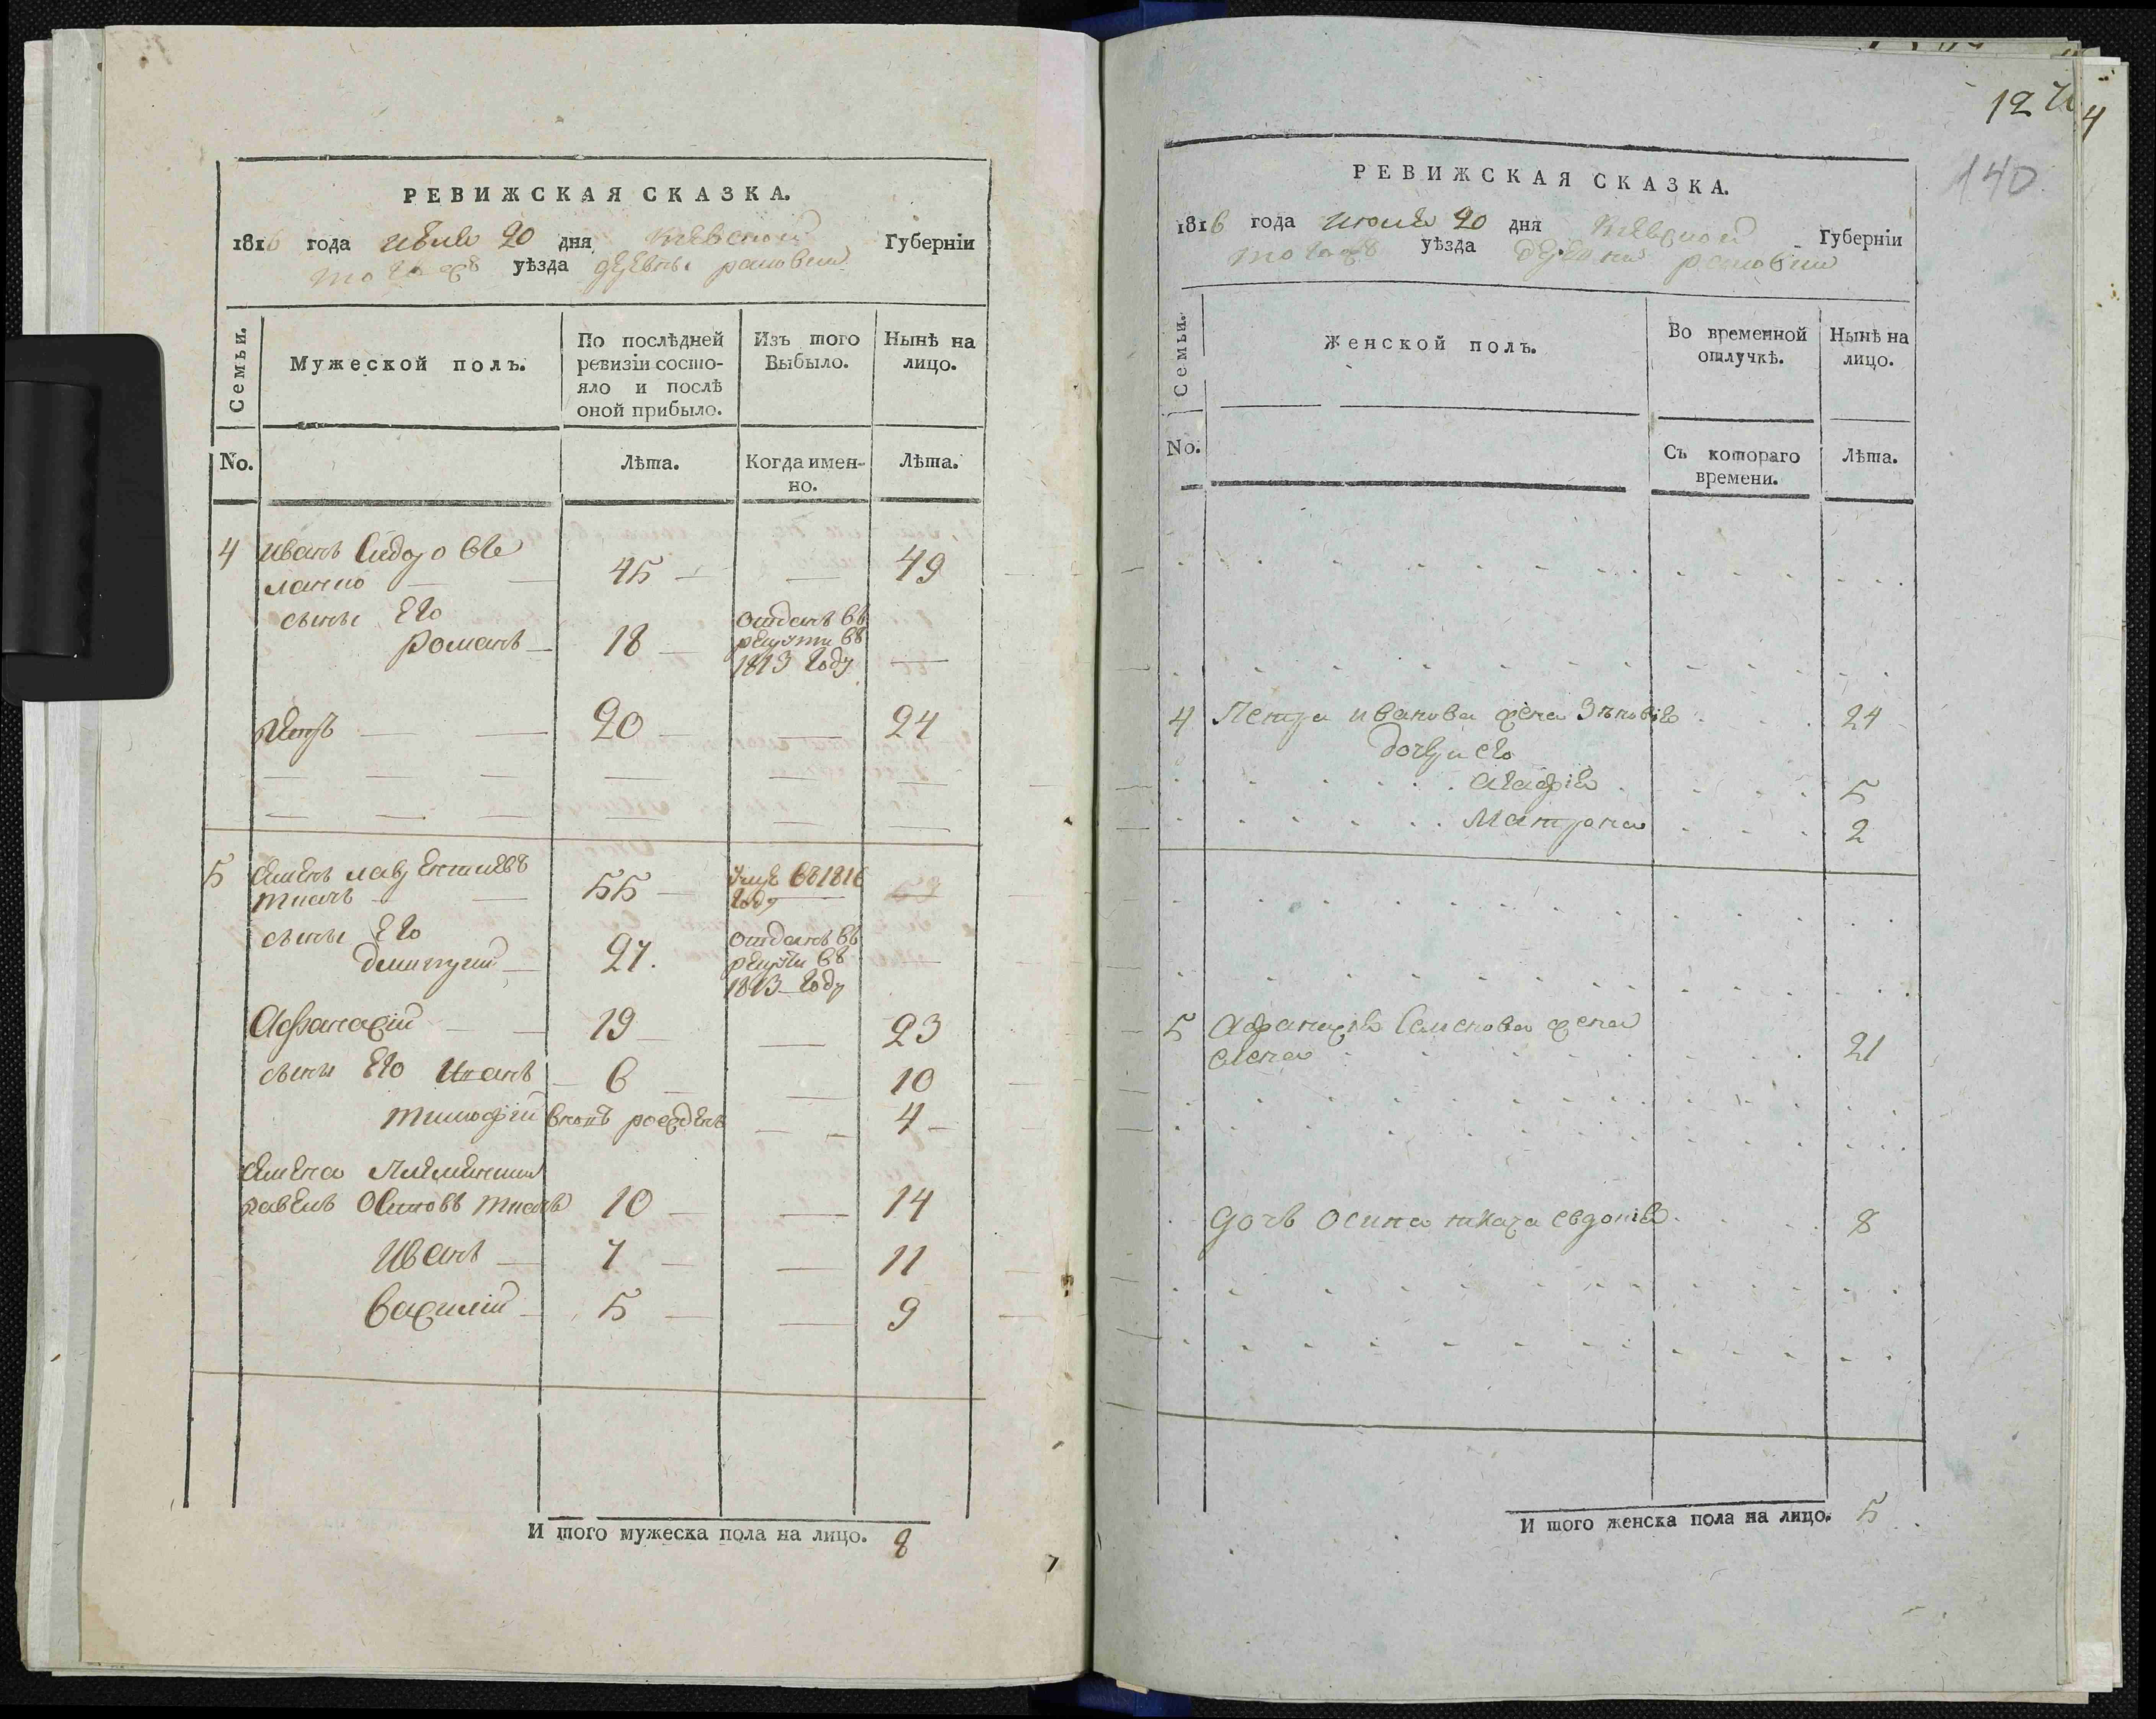 РЕВИЖСКАЯ СКАЗКА.
1816 года июля 20 дня Киевской Губерніи
того жъ уѣзда деревни
Семьи.
Мужеской полъ.
По послѣдней ревизіи состо-
яло и послѣ
оной прибыло.
Изъ того
Выбыло.
Нынѣ на
лицо.
No.
Лѣта.
Когда имен-
но.
Лѣта.
4 Иванъ Сидоровъ
45 49
сыны Его
Романъ 18 отданъ въ
рекруты въ
1813 году
Петръ 20 24
5 Семенъ Лаврентиевъ
Ткачъ 55 умре въ 1816
году
сыны Его
Дмитрий 27. отданъ въ
рекруты въ
1813 году
Афанасій 19 23
сыны Его Иванъ 6 10
Тимофій вновь рожденъ 4
Семена племянники
Павелъ Осиповъ Ткачъ 10 14
Иванъ 7 11
Василій 5 9
И того мужеска пола на лицо. 8
12
4
140
РЕВИЖСКАЯ СКАЗКА.
1816 года июля 20 дня Киевской Губерніи
того жъ уѣзда деревни
Семьи.
Женской полъ.
Во временной
отлучкѣ.
Нынѣ на
лицо.
No.
Съ котораго
времени.
Лѣта.
4 Петра Иванова жена Зѣновія 24
дочери его
Агафія 5
Матрона 2
5 Афанасія Семенова жена
Елена 21
Дочь Осипа ткача Евдокія 8
И того женска пола на лицо. 5